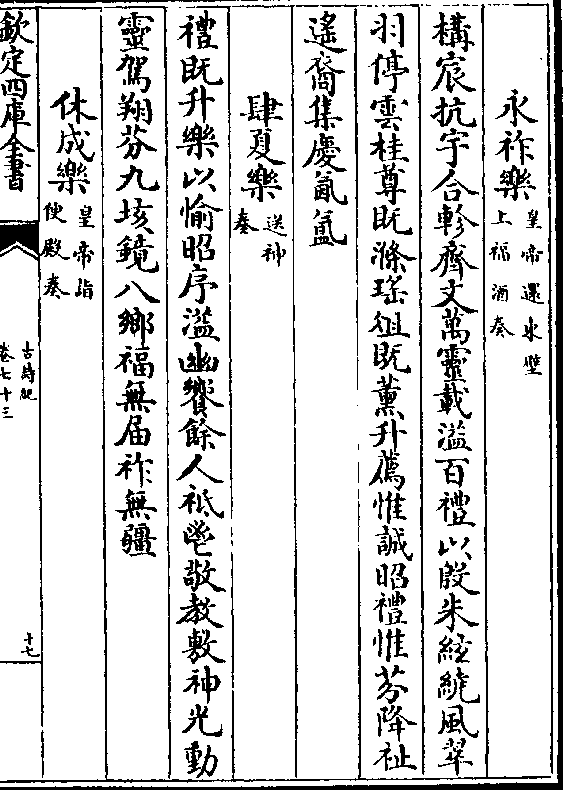 永祚樂 皇帝還東壁
上福酒奏
構宸抗宇合軫齊文萬靈載溢百禮以殷朱絃繞風翠
羽停雲桂尊既滌瑤俎既薰升薦惟誠昭禮惟芬降祉
遙裔集慶氤氳
肆夏樂 送神
奏
禮既升樂以愉昭序溢幽饗餘人祗鬯敬教敷神光動
靈駕翔芬九垓鏡八鄉福無屆祚無疆
休成樂 皇帝詣
便殿奏
欽定四庫全書
古詩紀
卷七十三
十七